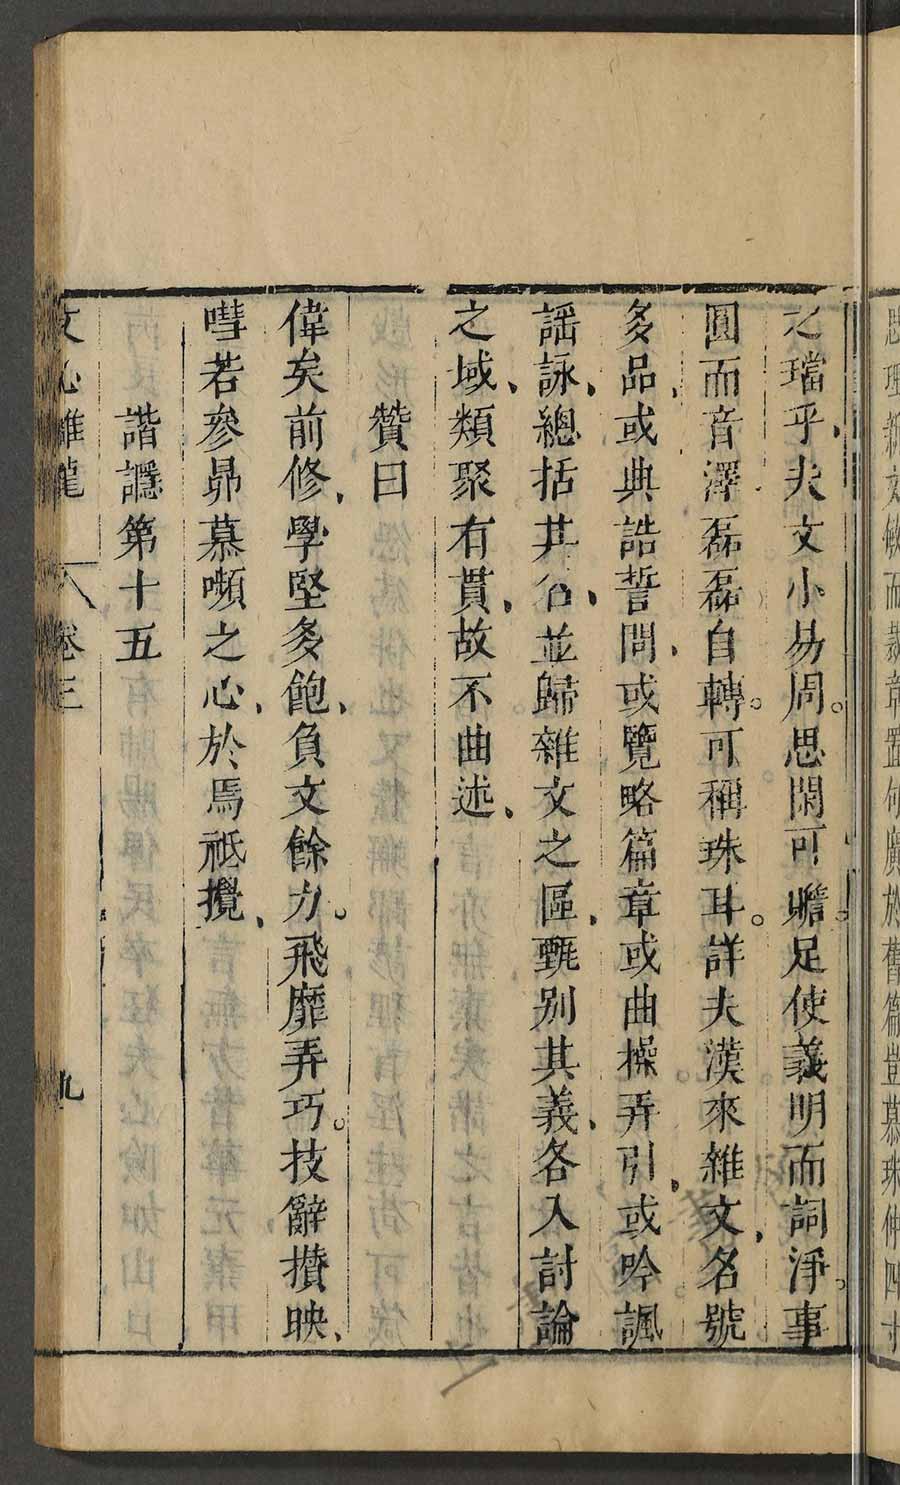 思理新文敏而裁章置句廣於舊篇豈慕珠仲四寸
之璫乎夫文小易周思閑可贍足使義明而詞淨事
圓而音澤磊磊自轉可稱珠耳詳夫漢來雜文名號
多品或典誥誓問或覽略篇章或曲操弄引或吟諷
謡詠總括其名並歸雜文之區甄别其義各入討論
之域類聚有貫故不曲述
贊曰
偉矣前修學堅多飽負文餘力飛靡弄巧技辭攅映
嘒若參昴慕嚬之心於焉祗攪
諧讔第十五
文心雕龍 卷三 九